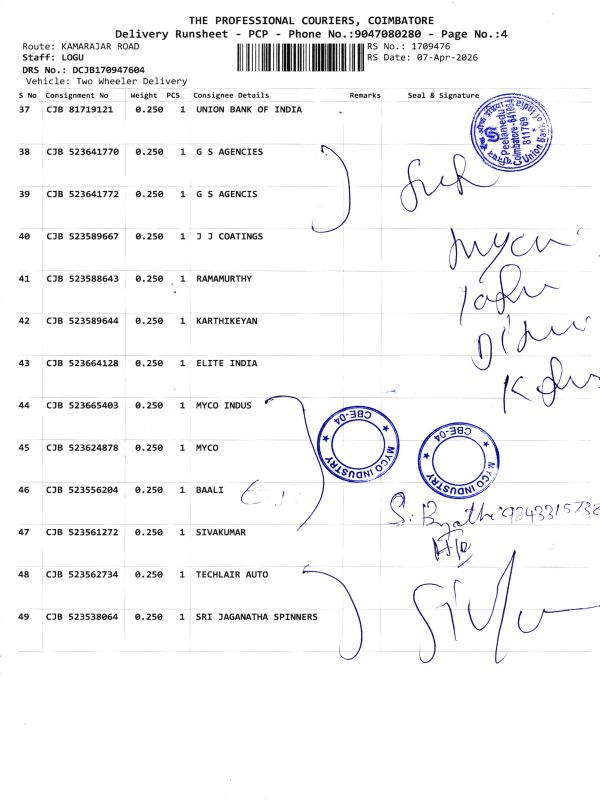 THE PROFESSIONAL COURIERS, COIMBATORE
Delivery Runsheet - PCP - Phone No.:9047080280 - Page No.:4
Route: KAMARAJAR ROAD
Staff: LOGU
DRS No.: DCJB170947604
Vehicle: Two Wheeler Delivery
RS No.: 1709476
RS Date: 07-Apr-2026
S No Consignment No Weight PCS Consignee Details Remarks Seal & Signature
37 CJB 81719121 0.250 1 UNION BANK OF INDIA
38 CJB 523641770 0.250 1 G S AGENCIES
39 CJB 523641772 0.250 1 G S AGENCIS
40 CJB 523589667 0.250 1 J J COATINGS
41 CJB 523588643 0.250 1 RAMAMURTHY
42 CJB 523589644 0.250 1 KARTHIKEYAN
43 CJB 523664128 0.250 1 ELITE INDIA
44 CJB 523665403 0.250 1 MYCO INDUS
45 CJB 523624878 0.250 1 MYCO
46 CJB 523556204 0.250 1 BAALI
47 CJB 523561272 0.250 1 SIVAKUMAR
48 CJB 523562734 0.250 1 TECHLAIR AUTO
49 CJB 523538064 0.250 1 SRI JAGANATHA SPINNERS
Peelamedu
Coimbatore-641004
811769
Union Bank of India
MYCO INDUSTRY
CBE-04
MYCO INDUSTRY
CBE-04
9843315738